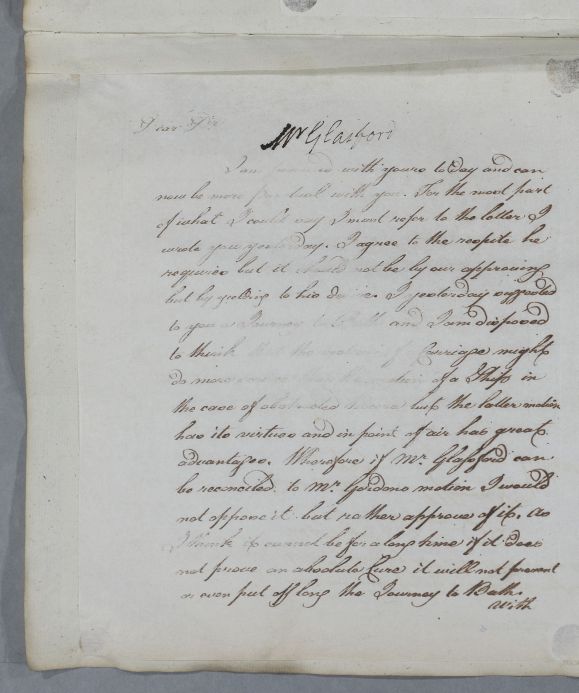 Dear Sir
Mr Glasford
I am favoured with yours to Day and can
now be more punctual with you. For the most part
of what I could say I must refer to the letter I
wrote you yesterday. I agree to the respite he
requires but it should not be by our approving
but by yielding to his desire. I yesterday suggested
to you a Journey to Bath and I am disposed
to think that the motion of Carriage might
do more service than the motion of a Ship in
the case of obstructed but the latter motion
has its virtues and in point of air has great
advantages. Wherefore if Mr. Glassford can
be reconciled to Mr. Gordons motion I would
not oppose it but rather approve of it. As
I think it cannot be for a long time if it does
not prove an absolute Cure it will not prevent
or even put off long the Journey to Bath.
with